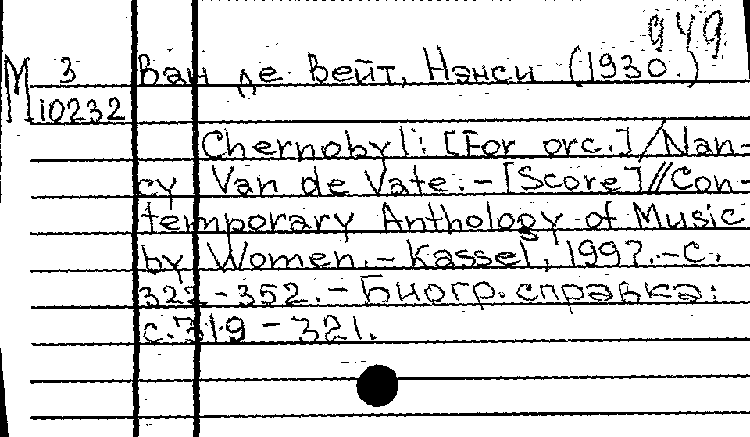 949
М 3 Ван де Вейт, Нэнси (1930.)
10232
Chernobyl: [For orc.] / Nan-
cy Van de Vate. - [Score] // Con-
temporary Anthology of Music
by Women. - Kassel, 1997. - С.
322-352. - Биогр. справка:
с. 319 - 321.